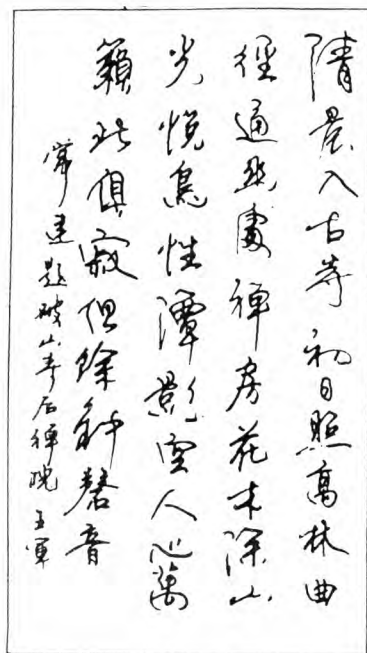 清晨入古寺初日照高林曲
徑通幽處禪房花木深山
光悅鳥性潭影空人心萬
籟此俱寂但餘鐘磬音
常建題破山寺后禪院 王軍